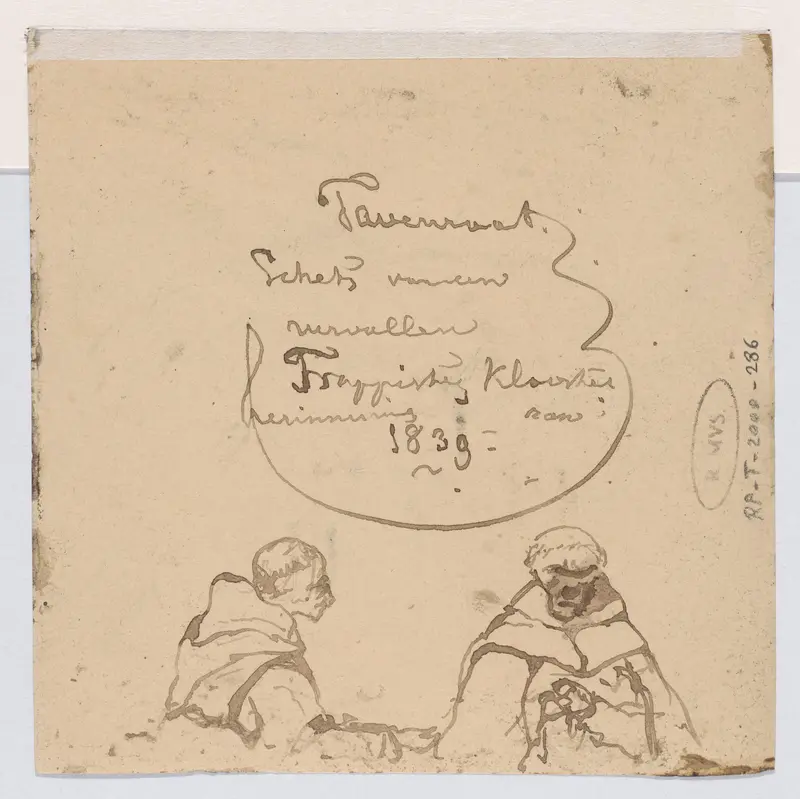 Tavenraat.
Schets van een
vervallen
Trappisten Klooster
herinnering van
1839
R MVS.
RP-T-2000-286